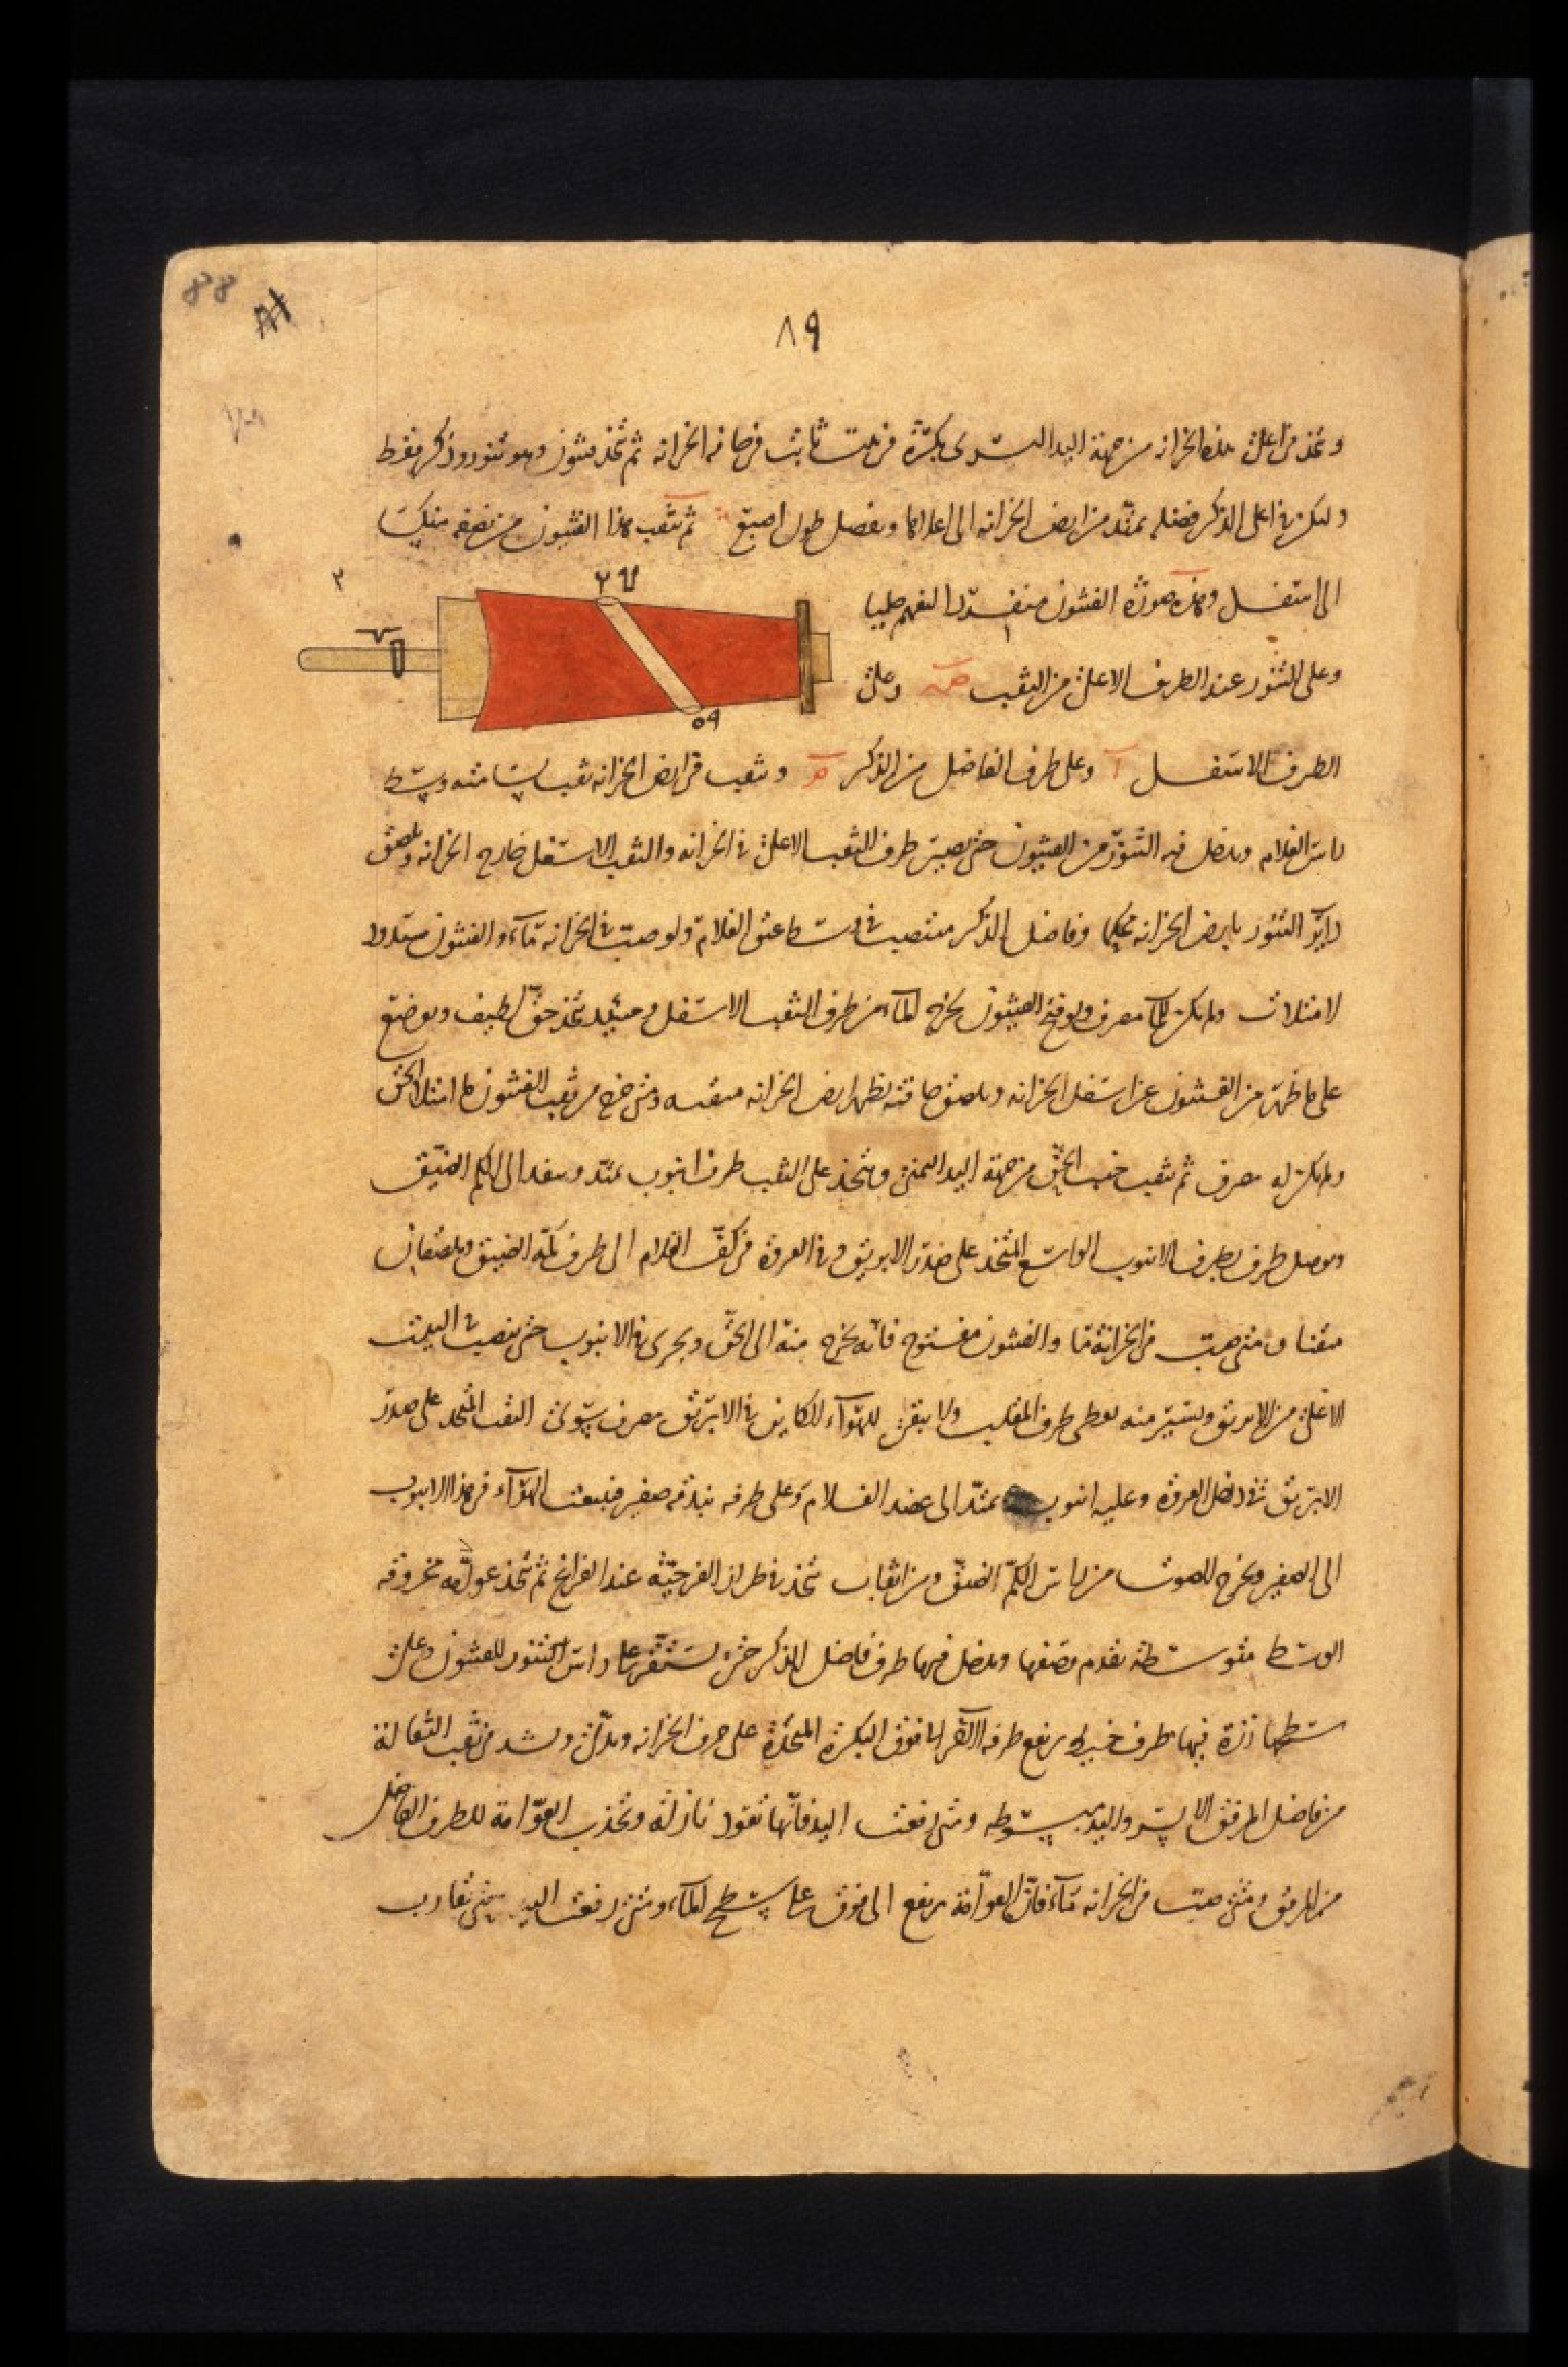 88
٨٩
ويتخذ في اعلى هذه الخزانة من جهة اليد اليسرى بكرة في بيت ثابت في حافة الخزانة ثم يتخذ فيثون وهو تنور وذكر فقط
وليكن في اعلى الذكر فضله يمتد من ارض الخزانة الى اعلاها ويفضل طول اصبع ثم يثقب هذا الفثيون من نصفه منكسا
الى اسفل وهذه صورة الفثيون منفردا ليفهم جليا
وعلى التنور عند الطرف الاعلى من الثقب وعلى
الطرف الاسفل وعلى طرف الفاضل من الذكر ويثقب في ارض الخزانة ثقب وسط
راس الغلام ويدخل فيه التنور من الفثيون حتى يصير طرف الثقب الاعلى في الخزانة والثقب الاسفل خارج الخزانة ويلصق
داير التنور بارض الخزانة محكما وفاضل الذكر منتصب في وسط عنق الغلام ولو صب في الخزانة ماء والفثيون مسدودا
لامتلات ولم يكن للماء مصرف ولو فتح الفثيون لخرج الماء من طرف الثقب الاسفل وحينئذ يتخذ حق لطيف ويوضع
على ما ظهر من الفثيون عن اسفل الخزانة ويلصق حافته بظهر ارض الخزانة ومتى خرج من ثقب الفثيون ما امتلا الحق
ولم يكن له مصرف ثم يثقب جنب الحق من جهة اليد اليمنى ويتخذ على الثقب طرف انبوب يمتد وينفد الى الكم الضيق
ويوصل طرف بطرف الانبوب الواسع المتخذ على صدر الابريق وفي العروة في كف الغلام الى طرف كمه الضيق ويلصقان
ومتى صب في الخزانة ما والفثيون مفتوح فانه يخرج منه الى الحق ويجري في الانبوب حتى ينصب في البيت
الاعلى من الابريق ويسير منه يعطى طرف المقلب ولا يبقى للهواء الكاين في الابريق مصرف سوى الثقب المتخذ على صدر
الابريق في داخل العروة وعليه انبوب يمتد الى عضد الغلام وعلى طرفه بندقة صفير فينبعث الهواء في هذا الانبوب
الى الصفير ويخرج الصوت من راس الكم الضيق ومن اثقاب تتخذ في طراز الفرجية عند الفراغ ثم يتخذ عوامة مخروقة
الوسط متوسطة تقدم وصفها ويدخل فيها طرف فاضل الذكر حتى تستقر على راس التنور للفثيون وعلى
سطحها زرة فيها طرف خيط يرفع طرفه الاخر الى فوق البكرة المتخذة على حرف الخزانة ويدلى ويشد في ثقب الثقالة
من فاضل المرفق الايسر واليد مبسوطة ومتى رفعت اليد فانها تعود نازلة وتجذب العوامة للطرف الفاضل
من المرفق ومتى صب في الخزانة ماء فان العوامة ترفع الى فوق على سطح الماء ومتى رفعت اليد حتى تقارب